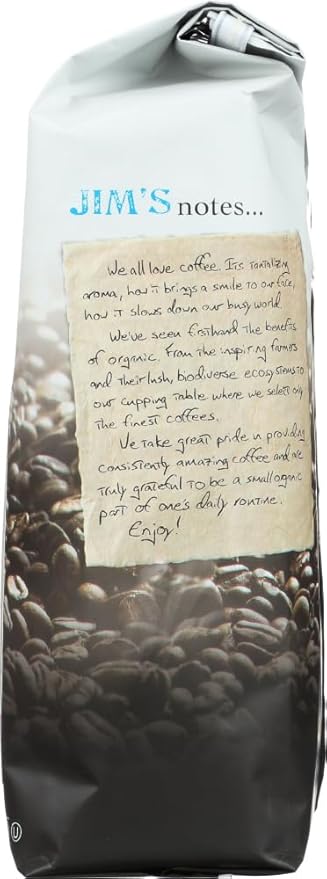 JIM'S notes...
We all love coffee. Its tantalizing
aroma, how it brings a smile to our face,
how it slows down our busy world.
We've seen firsthand the benefits
of organic. From the inspiring farmers
and their lush, biodiverse ecosystems to
our cupping table where we select only
the finest coffees.
We take great pride in providing
consistently amazing coffee and are
truly grateful to be a small organic
part of one's daily routine.
Enjoy!
U